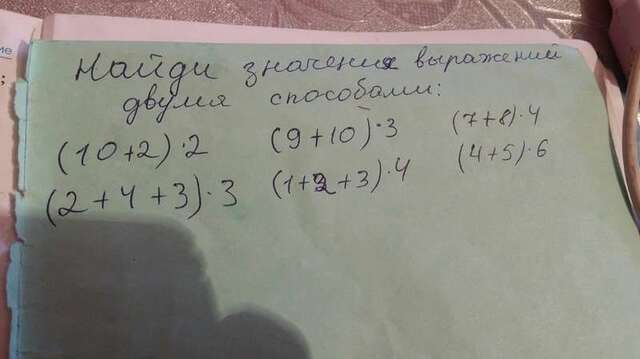 Найди значения выражений
двумя способами:
(10+2)·2 (9+10)·3 (7+8)·4
(2+4+3)·3 (1+2+3)·4 (4+5)·6